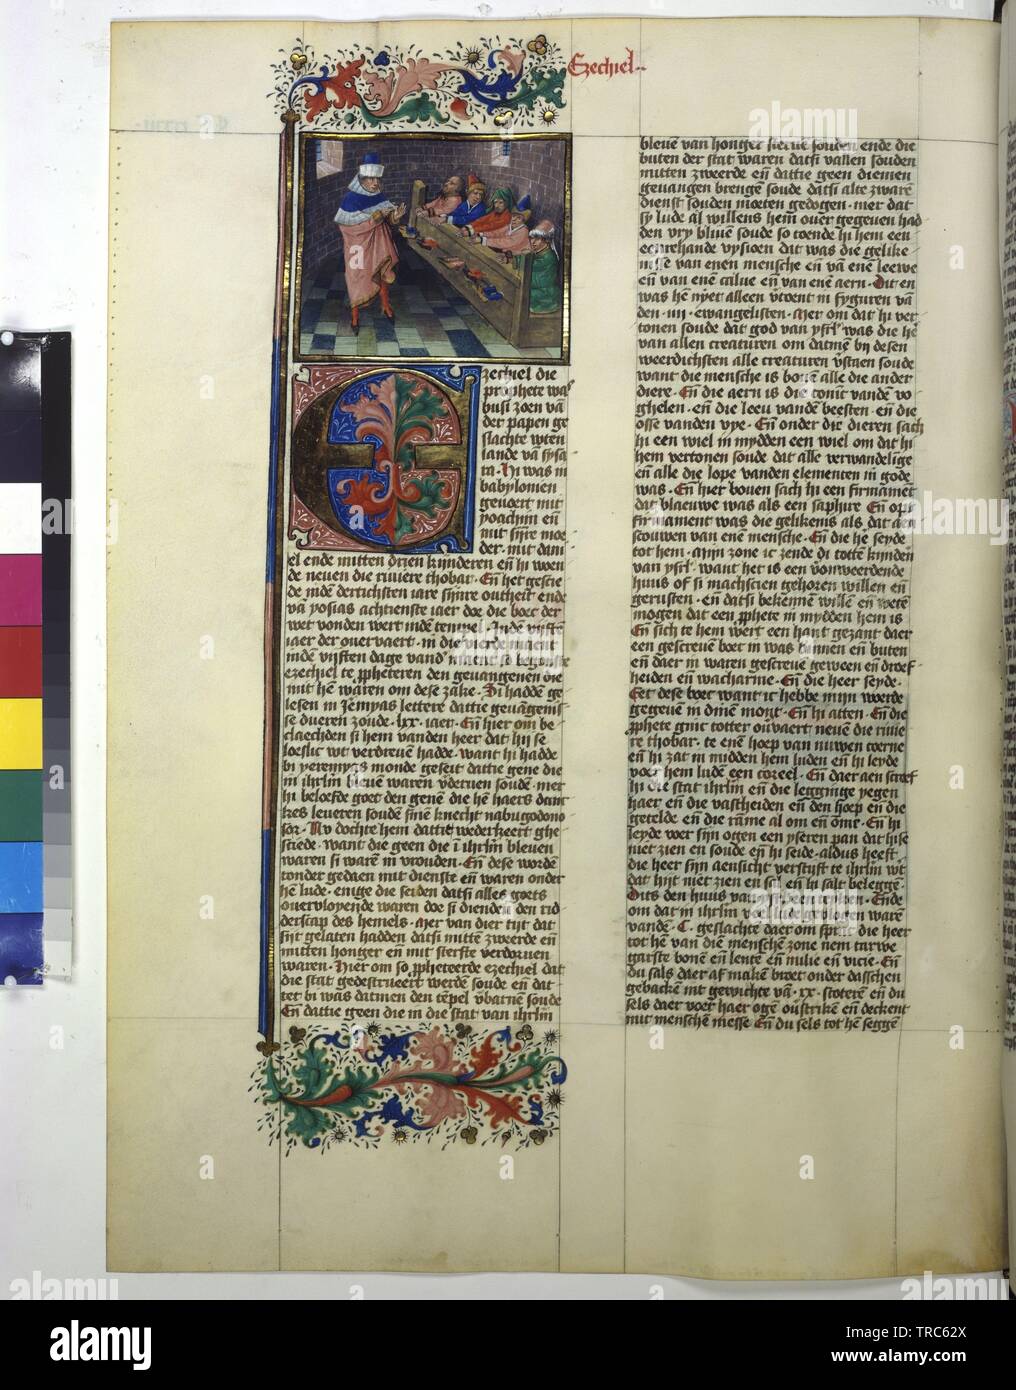 Ezechiel
Ezechiel die
prophete was
busi zoen vā
der papen ge
slachte wten
lande vā sysa
ra. Hi was in
babylonien
gevoert mit
yoachim eñ
mit sijnre moe
der. mit dani
el ende mitten drien kijnderen eñ hi woen
de neuen die riuiere thobar. Eñ het gescie
de indē dertichsten iare sijnre outheit ende
vā yosias achtienste iaer doe die boec der
wet vonden wert indē tempel. Indē vijftē
iaer der overvaert. in die vierde maent
indē vijften dage vand maent so begonste
ezechiel te ppheteren den geuangenen die
mit hē waren om dese zake. Si haddē ge
lesen in Jemyas lettere dattie geuāgenis
se dueren zoude. lxx. iaer. Eñ hier om be
claechden si hem vanden heer dat hij se
loeslic wt verdreuen hadde. want hi hadde
bi yeremyas monde geseit dattie gene die
in ihrlm bleuē waren verderuen soudē. mer
hi beloefde goet den genē die hē haers danc
kes leveren soudē sinē knecht nabugodono
sor. Nv dochte hem dattie wederkeert ghe
sciede. want die geen die ī ihrlm bleuen
waren si warē in vrouden. Eñ dese wordē
tonder gedaen mit dienste eñ waren onder
hē lude. enige die seiden datsi alles goets
overvloyende waren doe si diendē den rid
derscap des hemels. Mer van dier tijt dat
sijt gelaten hadden datsi mittē zweerde eñ
mitten honger eñ mit sterfte verdoruen
waren. Hier om so ppheteerde ezechiel dat
die stat gedestrueert werdē soude eñ dat
tet bi was datmen den tēpel vbarnē soude
Eñ dattie geen die in die stat van ihrlm
bleuē van honger steruē souden. ende die
buten der stat waren datsi vallen souden
mitten zweerde eñ dattie geen diemen
geuangen brengē soude datsi alte zwarē
dienst souden moeten gedogen. mer dat
sy lude al willens hem over gegeuen had
den vry bliuē soude so toende hi hem een
eenrehande vysioen dat was die gelike
nisse van enen mensche eñ vā enē leewe
eñ van enē calue eñ van enē aern. Dit en
was hē nyet alleen vtoent in fyguren vā
den. iiij. ewangelisten. Mer om dat hi ver
tonen soude dat god van ysrl was die hē
van allen creaturen om datmē bij desen
weerdichsten alle creaturen vstaen soude
want die mensche is bouē alle die ander
diere. Eñ die aern is die coninc vandē vo
ghelen. eñ die leeu vandē beesten. eñ die
osse vanden vye. Eñ onder dir dieren sach
hi een wiel in mydden een wiel om dat hi
hem vertonen soude dat alle verwandelige
eñ alle die lope vanden elementen in gode
was. Eñ hier bouen sach hi een firmamēt
dat blaeuwe was als een saphire Eñ opt
firmament was die gelikenis als dat aen
scouwen van enē mensche. Eñ die hē seyde
tot hem. Mijn zone ic zende di tottē kijnden
van ysrl. want het is een vorweerdende
huus of si machscien gehoren willen eñ
gerusten. Eñ datsi bekennē willē eñ wetē
mogen dat een pphete in myddē hem is
Eñ sich te hem wert een hant gezant daer
een gescreuē boec in was binnen eñ buten
eñ daer in waren gescreuē geween eñ droef
heiden eñ wacharme. Eñ die heer seyde.
Eet dese boec want ic hebbe mijn woerde
gegeuē in dinē mont. Eñ hi atten. Eñ die
pphete ginc totter ouvaert neuē die riuie
re thobar. te enē hoep van nuwen coerne
eñ hi zat in midden hem luden eñ hi leyde
voer hem ludē een tozeel. Eñ daer aen screef
hi die stat ihrlm eñ die leggnige yegen
haer eñ die vastheiden eñ den hoep eñ die
getelde eñ die rāme al om eñ ōme. Eñ hi
leyde voer sijn ogen een yseren pan dat hise
niet zien en soude eñ hi seide. aldus heeft
die heer sijn aensicht verstijft te ihrlm wt
dat hijt niet zien en sel eñ hi salt beleggē.
Dits den huus van ysrl een teiken. Ende
om dat in ihrlm vel lude gebleuen warē
vandē. C. geslachte daer om sprac die heer
tot hē van die menschē zone nem tarwe
garste bonē eñ lentē eñ milie eñ vicie. Eñ
du sals daer af makē broet onder dasschen
gebackē mt gewichte vā. xx. stoterē eñ du
sels daer voer haer ogē oustrikē eñ deckent
mit menschē messe Eñ du sels tot hē seggē
alamy
TRC62X
www.alamy.com